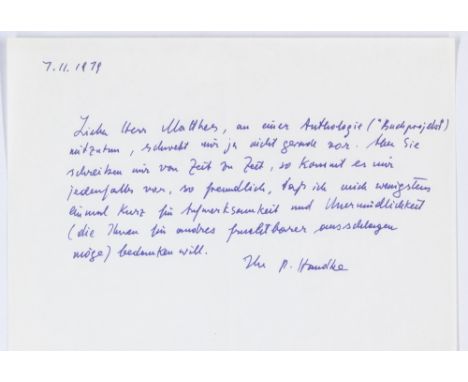 7.11.1979
Lieber Herr Matthes, an einer Anthologie ("Buchprojekt")
mitzutun, schwebt mir ja nicht gerade vor. Aber Sie
schreiben mir von Zeit zu Zeit, so kommt es mir
jedenfalls vor, so freundlich, daß ich mich wenigstens
einmal kurz für Aufmerksamkeit und Unermüdlichkeit
(die Ihnen für andres fruchtbarer ausschlagen
möge) bedanken will.
Ihr P. Handke